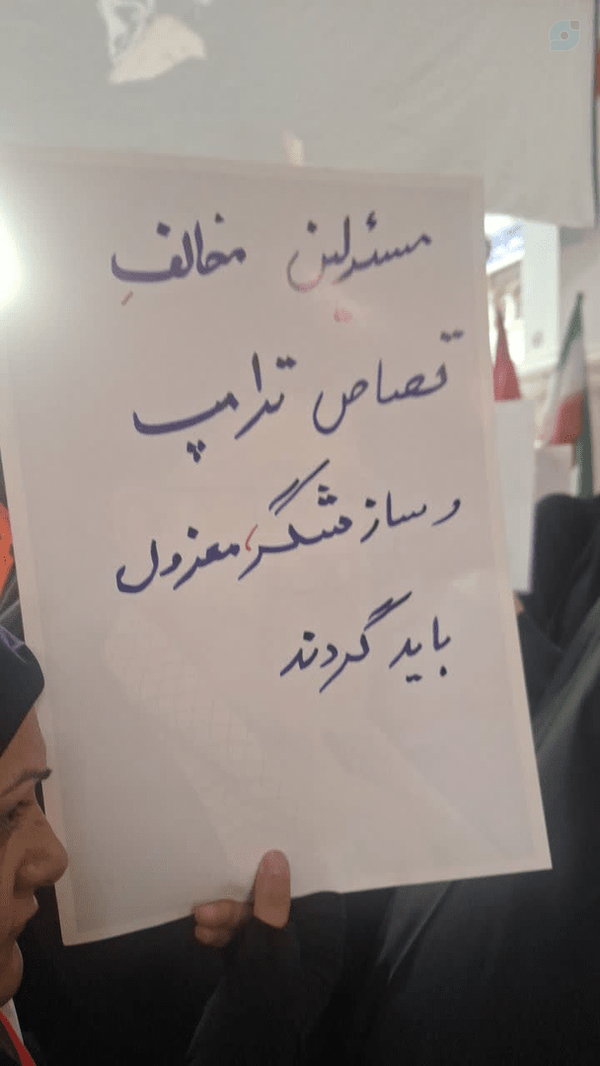 مسئولین مخالفِ
قصاص ترامپ
و سازشگر، معزول
باید گردند